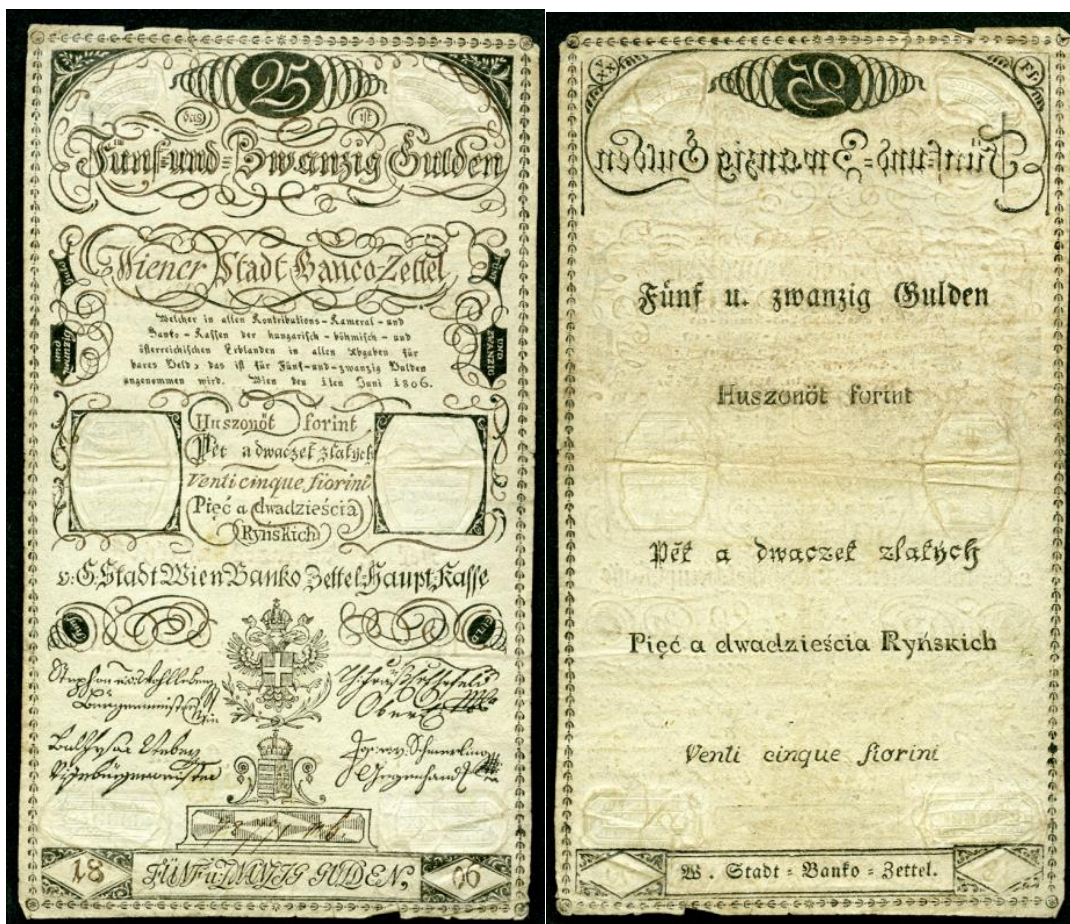 25
das ist
Fünf-und-Zwanzig Gulden
Wiener Stadt Banco-Zettel
Welcher in allen Kontributions-Kameral-und
Banko-Kassen der hungarisch-böhmisch-und
österreichischen Erblanden in allen Abgaben für
bares Geld, das ist für Fünf-und-zwanzig Gulden
angenommen wird. Wien den 1ten Juni 1806.
und zwanzig
UND ZWANZIG
Huszonöt forint
Pět a dwaczet zlatých
Venti cinque fiorini
Pięć a dwadzieścia
Ryńskich
v: G. Stadt Wien Banko Zettel Haupt Kasse
18 FÜNF u. ZWANZIG GULDEN, 06
25
Fünf-und-Zwanzig Gulden
Fünf u. zwanzig Gulden
Huszonöt forint
Pět a dwaczet zlatých
Pięć a dwadzieścia Ryńskich
Venti cinque fiorini
W. Stadt-Banko-Zettel.